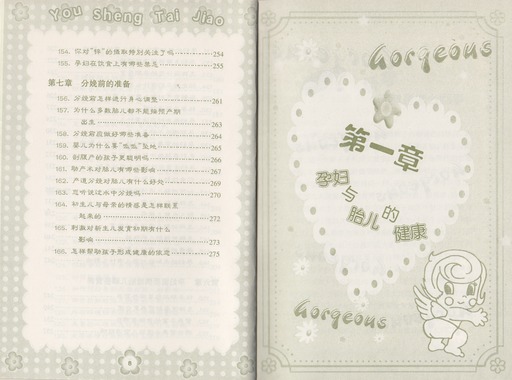 You Sheng Tai Jiao
154. 你对“锌”的摄取特别关注了吗 254
155. 孕妇在饮食上有哪些禁忌 255
第七章 分娩前的准备
156. 分娩前怎样进行身心调整 261
157. 为什么多数胎儿都不能按预产期
出生 263
158. 分娩前应做好哪些准备 264
159. 婴儿为什么要“呱呱”坠地 265
160. 剖腹产的孩子更聪明吗 266
161. 助产术对胎儿有哪些影响 267
162. 产道分娩对胎儿有什么好处 269
163. 您听说过水中分娩吗 270
164. 初生儿与母亲的情感是怎样联系
起来的 272
165. 刺激对新生儿发育初期有什么
影响 273
166. 怎样帮助孩子形成健康的依恋 275
8
Gorgeous
第一章
孕妇
与
胎儿的
健康
Gorgeous